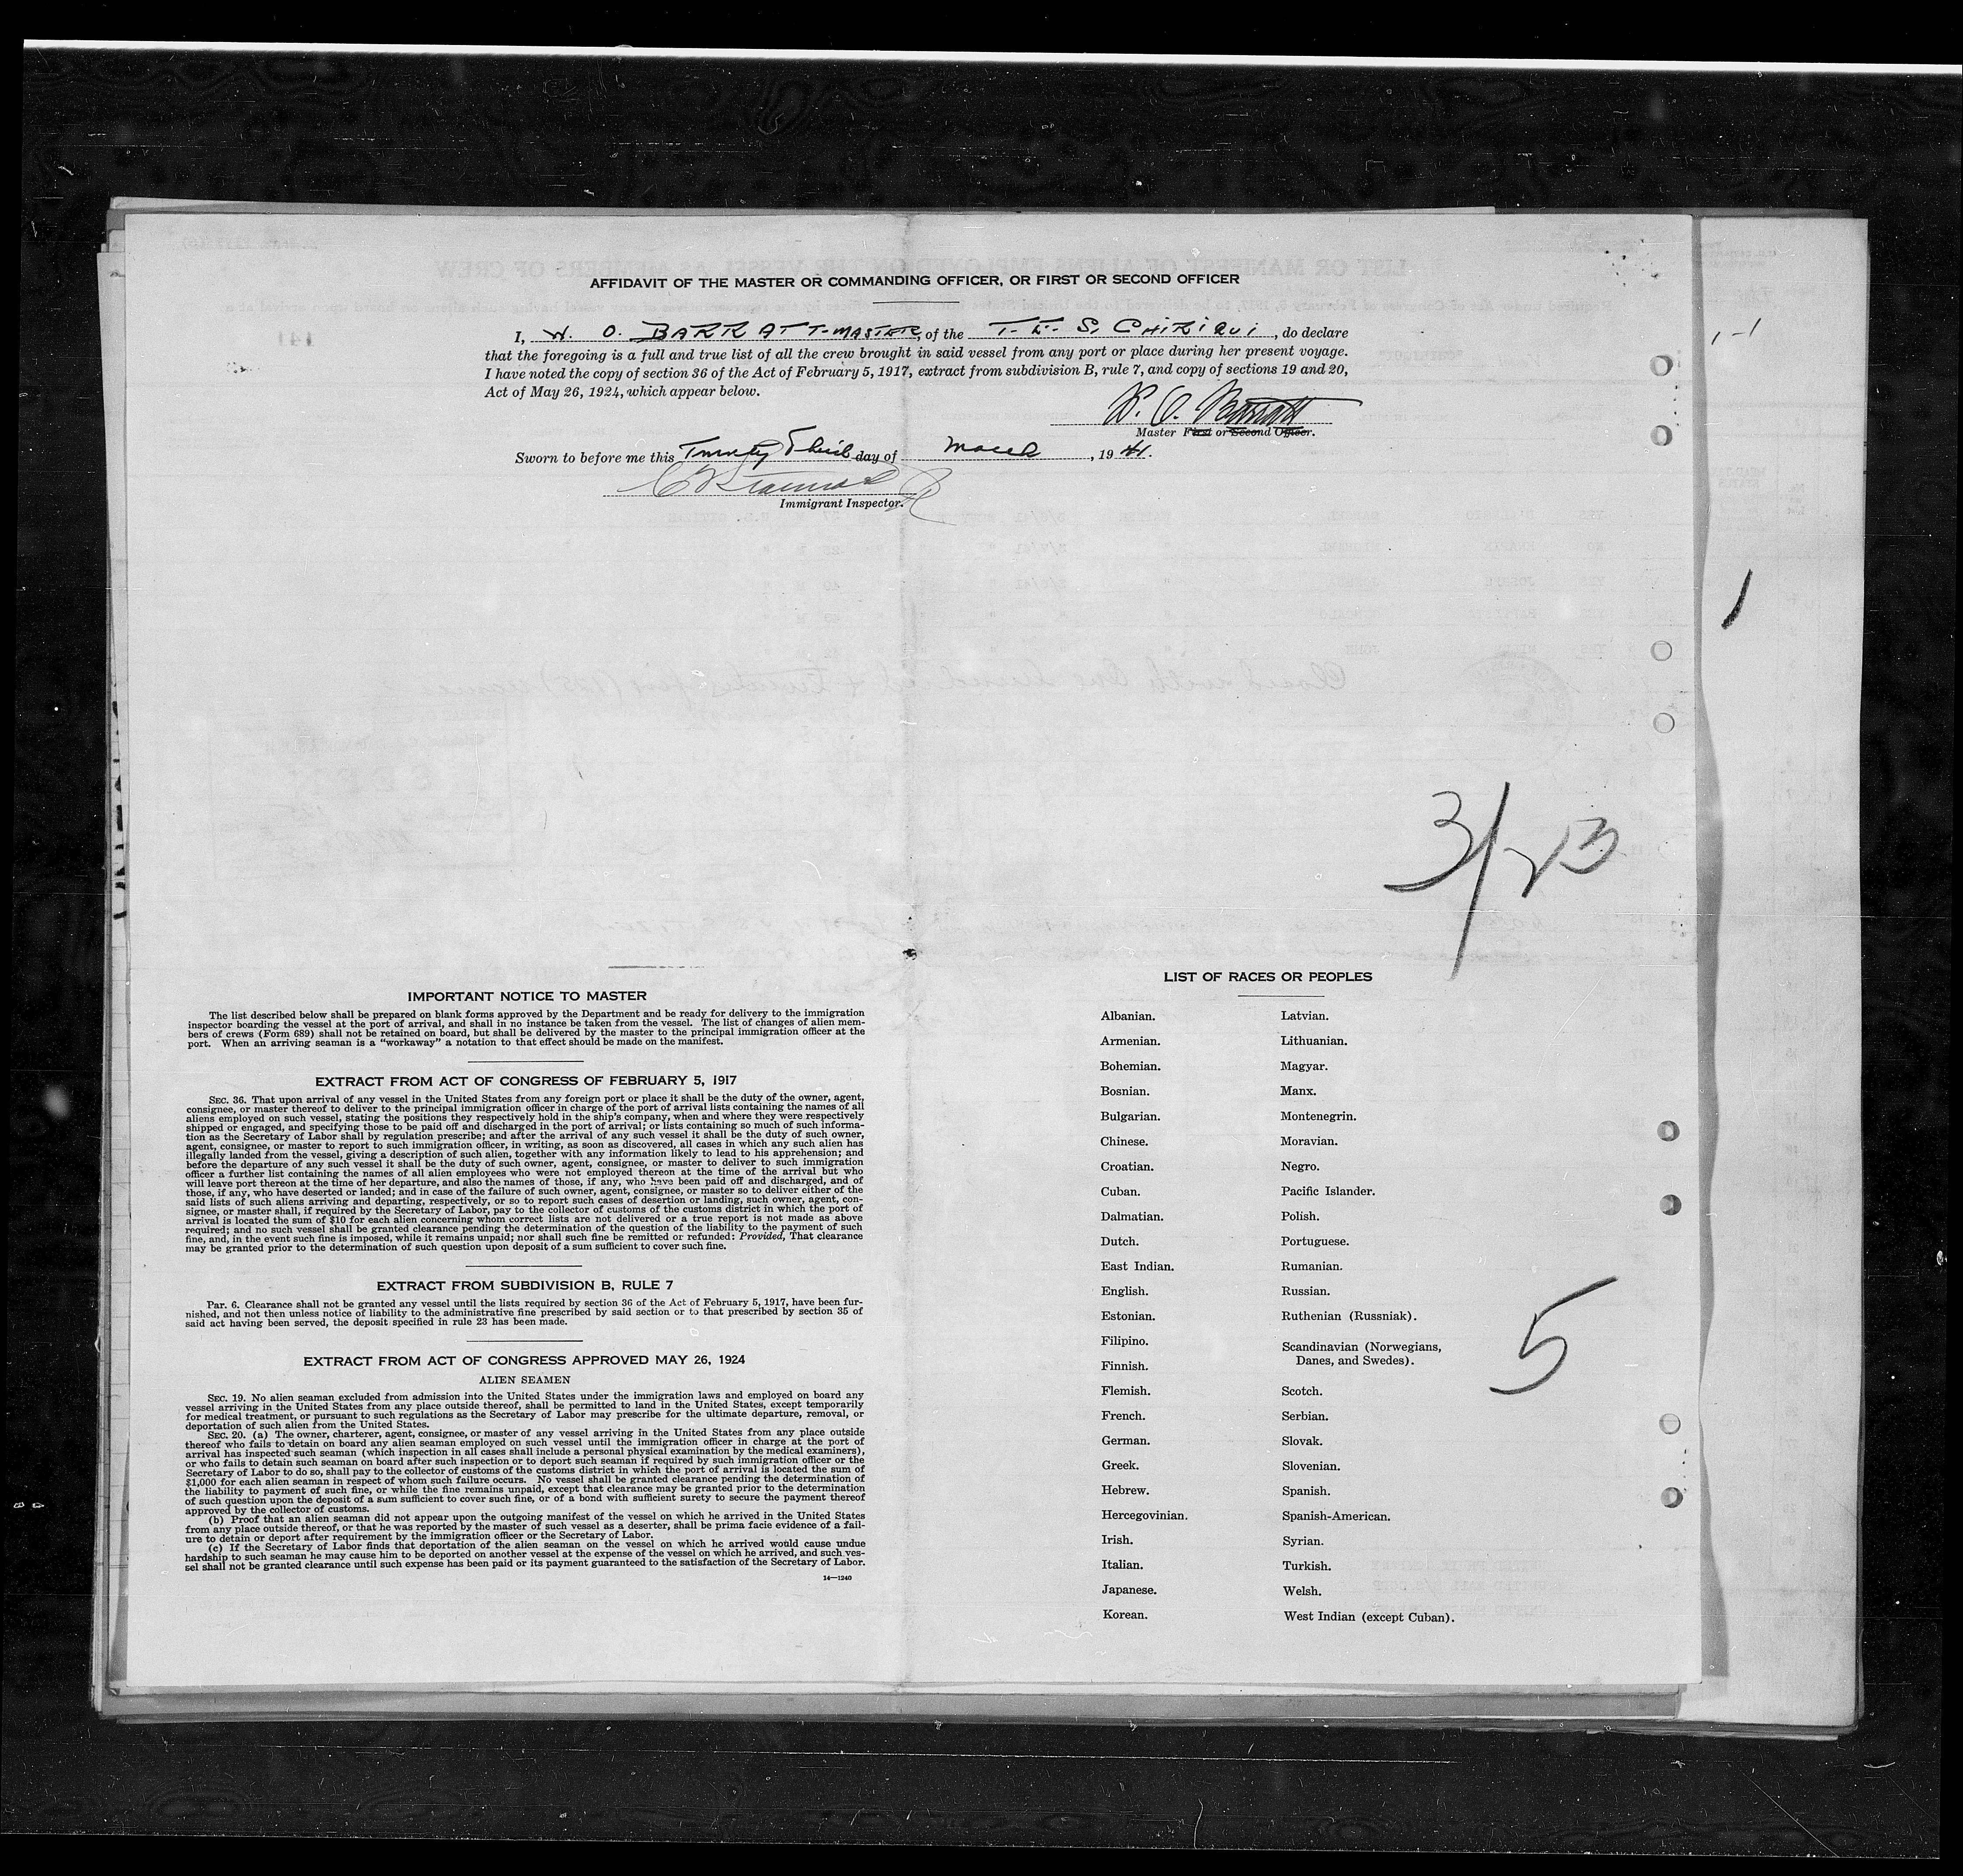 AFFIDAVIT OF THE MASTER OR COMMANDING OFFICER, OR FIRST OR SECOND OFFICER
I, W. O. BARRATT-MASTER, of the T. E. S. CHIRIQUI, do declare
that the foregoing is a full and true list of all the crew brought in said vessel from any port or place during her present voyage.
I have noted the copy of section 36 of the Act of February 5, 1917, extract from subdivision B, rule 7, and copy of sections 19 and 20,
Act of May 26, 1924, which appear below.
W. O. Barratt
Master First or Second Officer.
Sworn to before me this Twenty Third day of March, 1941.
Immigrant Inspector.
1-1
1
3/23
IMPORTANT NOTICE TO MASTER
The list described below shall be prepared on blank forms approved by the Department and be ready for delivery to the immigration
inspector boarding the vessel at the port of arrival, and shall in no instance be taken from the vessel. The list of changes of alien mem-
bers of crews (Form 689) shall not be retained on board, but shall be delivered by the master to the principal immigration officer at the
port. When an arriving seaman is a "workaway" a notation to that effect should be made on the manifest.
EXTRACT FROM ACT OF CONGRESS OF FEBRUARY 5, 1917
SEC. 36. That upon arrival of any vessel in the United States from any foreign port or place it shall be the duty of the owner, agent,
consignee, or master thereof to deliver to the principal immigration officer in charge of the port of arrival lists containing the names of all
aliens employed on such vessel, stating the positions they respectively hold in the ship's company, when and where they were respectively
shipped or engaged, and specifying those to be paid off and discharged in the port of arrival; or lists containing so much of such informa-
tion as the Secretary of Labor shall by regulation prescribe; and after the arrival of any such vessel it shall be the duty of such owner,
agent, consignee, or master to report to such immigration officer, in writing, as soon as discovered, all cases in which any such alien has
illegally landed from the vessel, giving a description of such alien, together with any information likely to lead to his apprehension; and
before the departure of any such vessel it shall be the duty of such owner, agent, consignee, or master to deliver to such immigration
officer a further list containing the names of all alien employees who were not employed thereon at the time of the arrival but who
will leave port thereon at the time of her departure, and also the names of those, if any, who have been paid off and discharged, and of
those, if any, who have deserted or landed; and in case of the failure of such owner, agent, consignee, or master so to deliver either of the
said lists of such aliens arriving and departing, respectively, or so to report such cases of desertion or landing, such owner, agent, con-
signee, or master shall, if required by the Secretary of Labor, pay to the collector of customs of the customs district in which the port of
arrival is located the sum of $10 for each alien concerning whom correct lists are not delivered or a true report is not made as above
required; and no such vessel shall be granted clearance pending the determination of the question of the liability to the payment of such
fine, and, in the event such fine is imposed, while it remains unpaid; nor shall such fine be remitted or refunded: Provided, That clearance
may be granted prior to the determination of such question upon deposit of a sum sufficient to cover such fine.
EXTRACT FROM SUBDIVISION B, RULE 7
Par. 6. Clearance shall not be granted any vessel until the lists required by section 36 of the Act of February 5, 1917, have been fur-
nished, and not then unless notice of liability to the administrative fine prescribed by said section or to that prescribed by section 35 of
said act having been served, the deposit specified in rule 23 has been made.
EXTRACT FROM ACT OF CONGRESS APPROVED MAY 26, 1924
ALIEN SEAMEN
SEC. 19. No alien seaman excluded from admission into the United States under the immigration laws and employed on board any
vessel arriving in the United States from any place outside thereof, shall be permitted to land in the United States, except temporarily
for medical treatment, or pursuant to such regulations as the Secretary of Labor may prescribe for the ultimate departure, removal, or
deportation of such alien from the United States.
SEC. 20. (a) The owner, charterer, agent, consignee, or master of any vessel arriving in the United States from any place outside
thereof who fails to detain on board any alien seaman employed on such vessel until the immigration officer in charge at the port of
arrival has inspected such seaman (which inspection in all cases shall include a personal physical examination by the medical examiners),
or who fails to detain such seaman on board after such inspection or to deport such seaman if required by such immigration officer or the
Secretary of Labor to do so, shall pay to the collector of customs of the customs district in which the port of arrival is located the sum of
$1,000 for each alien seaman in respect of whom such failure occurs. No vessel shall be granted clearance pending the determination of
the liability to payment of such fine, or while the fine remains unpaid, except that clearance may be granted prior to the determination
of such question upon the deposit of a sum sufficient to cover such fine, or of a bond with sufficient surety to secure the payment thereof
approved by the collector of customs.
(b) Proof that an alien seaman did not appear upon the outgoing manifest of the vessel on which he arrived in the United States
from any place outside thereof, or that he was reported by the master of such vessel as a deserter, shall be prima facie evidence of a fail-
ure to detain or deport after requirement by the immigration officer or the Secretary of Labor.
(c) If the Secretary of Labor finds that deportation of the alien seaman on the vessel on which he arrived would cause undue
hardship to such seaman he may cause him to be deported on another vessel at the expense of the vessel on which he arrived, and such ves-
sel shall not be granted clearance until such expense has been paid or its payment guaranteed to the satisfaction of the Secretary of Labor.
14—1240
LIST OF RACES OR PEOPLES
Albanian.
Armenian.
Bohemian.
Bosnian.
Bulgarian.
Chinese.
Croatian.
Cuban.
Dalmatian.
Dutch.
East Indian.
English.
Estonian.
Filipino.
Finnish.
Flemish.
French.
German.
Greek.
Hebrew.
Hercegovinian.
Irish.
Italian.
Japanese.
Korean.
Latvian.
Lithuanian.
Magyar.
Manx.
Montenegrin.
Moravian.
Negro.
Pacific Islander.
Polish.
Portuguese.
Rumanian.
Russian.
Ruthenian (Russniak).
Scandinavian (Norwegians,
Danes, and Swedes).
Scotch.
Serbian.
Slovak.
Slovenian.
Spanish.
Spanish-American.
Syrian.
Turkish.
Welsh.
West Indian (except Cuban).
5